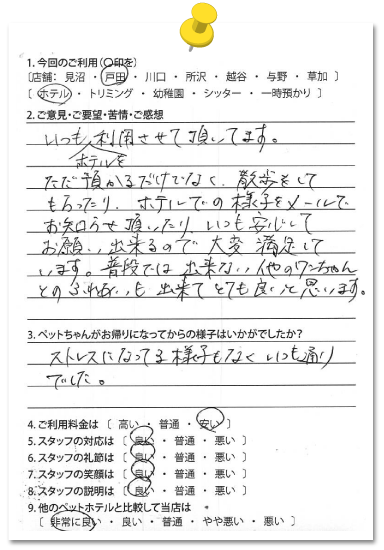 1. 今回のご利用(〇印を)
[店舗： 見沼 ・ 戸田 ・ 川口 ・ 所沢 ・ 越谷 ・ 与野 ・ 草加 ]
[ ホテル ・ トリミング ・ 幼稚園 ・ シッター ・ 一時預かり ]
2. ご意見・ご要望・苦情・ご感想
いつも利用させて頂いてます。
ホテルを
ただ預かるだけでなく、散歩をして
もらったり、ホテルでの様子をメールで
お知らせ頂いたり、いつも安心して
お願い出来るので大変満足して
います。普段では出来ない他のワンちゃん
とのふれ合いも出来てとても良いと思います。
3. ペットちゃんがお帰りになってからの様子はいかがでしたか?
ストレスになってる様子もなくいつも通り
でした。
4. ご利用料金は [ 高い ・ 普通 ・ 安い ]
5. スタッフの対応は [ 良い ・ 普通 ・ 悪い ]
6. スタッフの礼節は [ 良い ・ 普通 ・ 悪い ]
7. スタッフの笑顔は [ 良い ・ 普通 ・ 悪い ]
8. スタッフの説明は [ 良い ・ 普通 ・ 悪い ]
9. 他のペットホテルと比較して当店は
[ 非常に良い ・ 良い ・ 普通 ・ やや悪い ・ 悪い ]